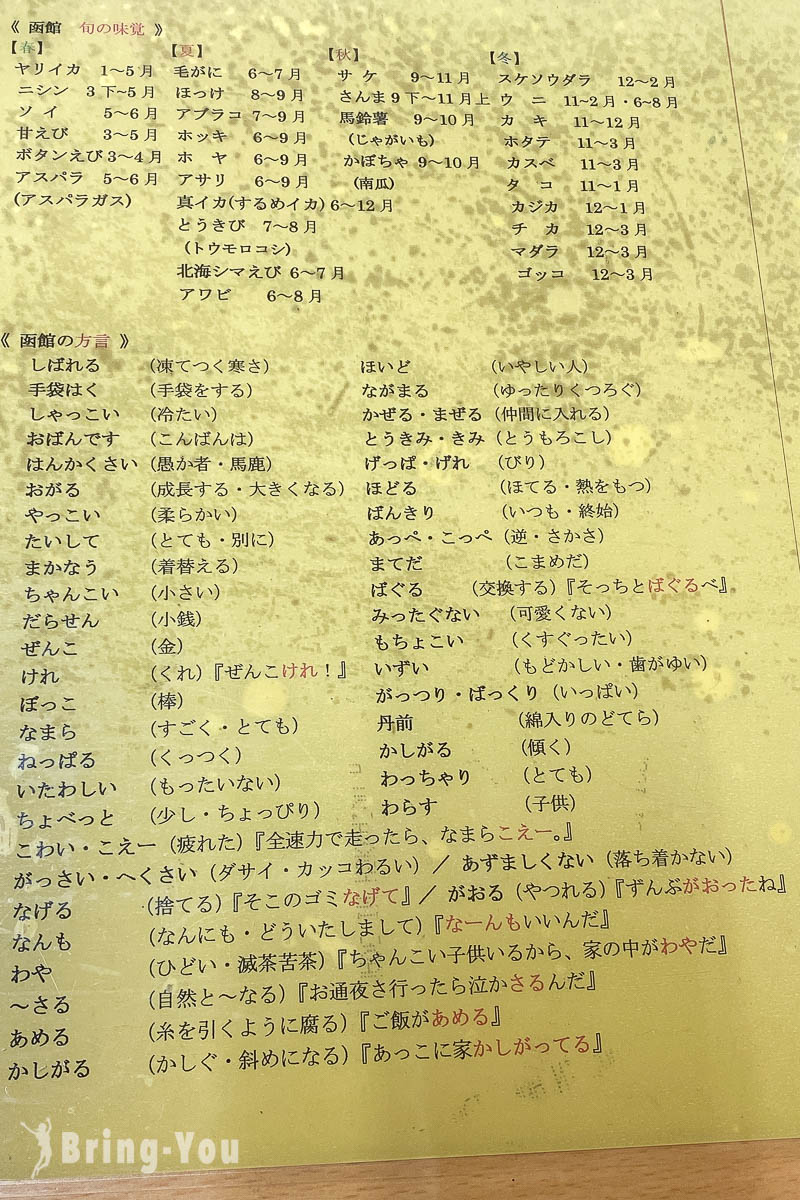 《 函館 旬の味覚 》
【春】
ヤリイカ 1～5月
ニシン 3下～5月
ソイ 5～6月
甘えび 3～5月
ボタンえび 3～4月
アスパラ 5～6月
(アスパラガス)
【夏】
毛がに 6～7月
ほっけ 8～9月
アブラコ 7～9月
ホッキ 6～9月
ホヤ 6～9月
アサリ 6～9月
真イカ(するめイカ) 6～12月
とうきび 7～8月
(トウモロコシ)
北海シマえび 6～7月
アワビ 6～8月
【秋】
サケ 9～11月
さんま 9下～11月上
馬鈴薯 9～10月
(じゃがいも)
かぼちゃ 9～10月
(南瓜)
【冬】
スケソウダラ 12～2月
ウニ 11~2月・6~8月
カキ 11～12月
ホタテ 11～3月
カスベ 11～3月
タコ 11～1月
カジカ 12～1月
チカ 12～3月
マダラ 12～3月
ゴッコ 12～3月
《 函館の方言 》
しばれる (凍てつく寒さ)
手袋はく (手袋をする)
しゃっこい (冷たい)
おばんです (こんばんは)
はんかくさい (愚か者・馬鹿)
おがる (成長する・大きくなる)
やっこい (柔らかい)
たいして (とても・別に)
まかなう (着替える)
ちゃんこい (小さい)
だらせん (小銭)
ぜんこ (金)
けれ (くれ)『ぜんこけれ！』
ぼっこ (棒)
なまら (すごく・とても)
ねっぱる (くっつく)
いたわしい (もったいない)
ちょべっと (少し・ちょっぴり)
ほいど (いやしい人)
ながまる (ゆったりくつろぐ)
かぜる・まぜる (仲間に入れる)
とうきみ・きみ (とうもろこし)
げっぱ・げれ (びり)
ほどる (ほてる・熱をもつ)
ばんきり (いつも・終始)
あっぺ・こっぺ (逆・さかさ)
まてだ (こまめだ)
ばぐる (交換する)『そっちとばぐるべ』
みったぐない (可愛くない)
もちょこい (くすぐったい)
いずい (もどかしい・歯がゆい)
がっつり・ばっくり (いっぱい)
丹前 (綿入りのどてら)
かしがる (傾く)
わっちゃり (とても)
わらす (子供)
こわい・こえー (疲れた)『全速力で走ったら、なまらこえー。』
がっさい・へくさい (ダサイ・カッコわるい) / あずましくない (落ち着かない)
なげる (捨てる)『そこのゴミなげて』/ がおる (やつれる)『ずんぶがおったね』
なんも (なんにも・どういたしまして)『なーんもいいんだ』
わや (ひどい・滅茶苦茶)『ちゃんこい子供いるから、家の中がわやだ』
～さる (自然と～なる)『お通夜さ行ったら泣かさるんだ』
あめる (糸を引くように腐る)『ご飯があめる』
かしがる (かしぐ・斜めになる)『あっこに家かしがってる』
Bring-You